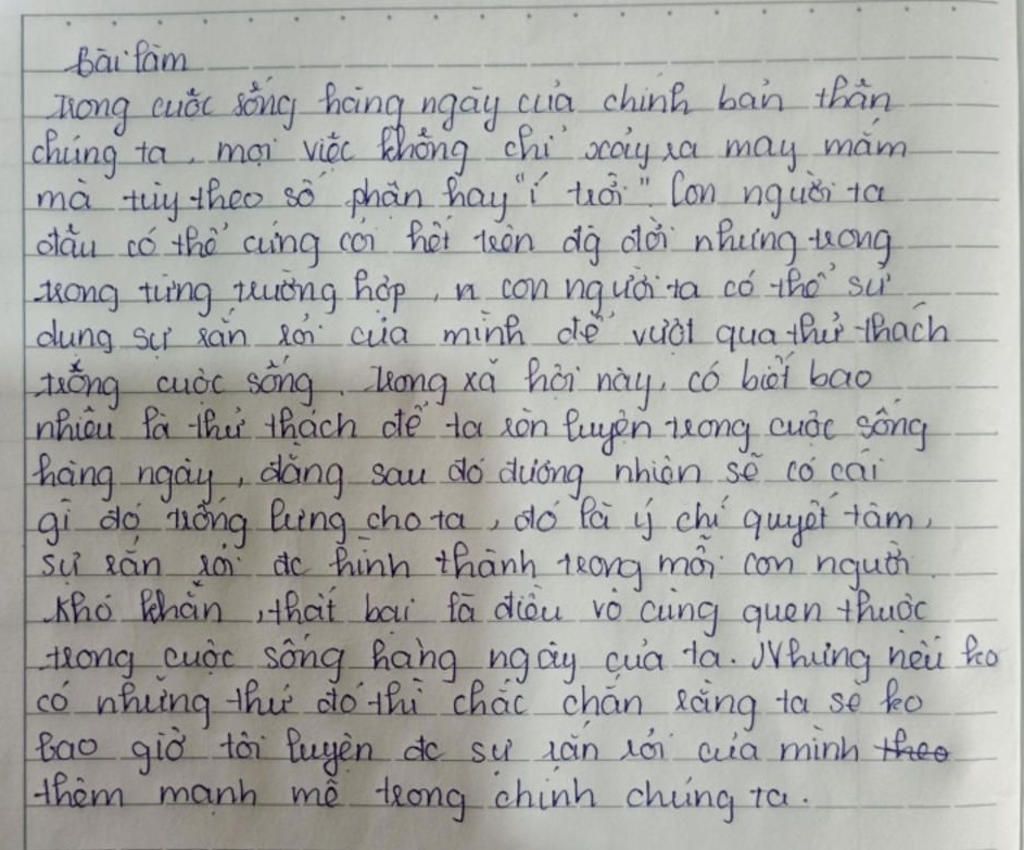 Bài làm
Trong cuộc sống hàng ngày của chính bản thân
chúng ta, mọi việc không chỉ xảy ra may mắn
mà tùy theo số phận hay "í trời". Con người ta
đâu có thể cứng cỏi hết trên đg đời nhưng trong
trong từng trường hợp, n con người ta có thể sử
dụng sự rắn rỏi của mình để vượt qua thử thách
trong cuộc sống. Trong xã hội này, có biết bao
nhiêu là thử thách để ta rèn luyện trong cuộc sống
hàng ngày, đằng sau đó đương nhiên sẽ có cái
gì đó trống lưng cho ta, đó là ý chí quyết tâm,
sự rắn rỏi đc hình thành trong mỗi con người.
Khó khăn, thất bại là điều vô cùng quen thuộc
trong cuộc sống hàng ngày của ta. Nhưng nếu ko
có những thứ đó thì chắc chắn rằng ta sẽ ko
bao giờ tôi luyện đc sự rắn rỏi của mình theo
thêm mạnh mẽ trong chính chúng ta.